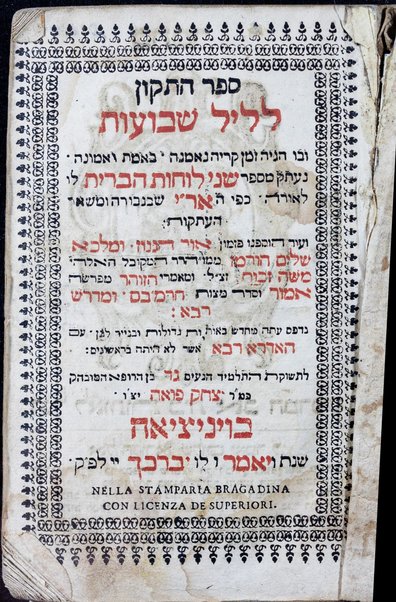 ספר התקון
לליל שבועות
ובו הגיה זמן קריה נאמנה ׳ באמת ואמונה ׳
נעתק מספר שני לוחות הברית לו
לאורה ׳ כפי האר״י שבגבורה ומשאר
העתקות ׳
ועוד הוספנו פזמון אור הגנוז ׳ ומלכא
שלים חורמן ממו הרר המקובל האלהי
משה זכות זצ״ל ׳ ומאמרי הזוהר מפרשה
אמור ׳ וסדר מצות הרמב״ם ׳ ומדרש
רבא :
נדפס עתה מחדש באותיות גדולות ובנייר לבן ׳ עם
האדרא רבא אשר לא היתה בראשונים :
לתשוקת התלמיד הנעים גד בן הרופא המובהק
כמ״ר יצחק פואה יצ״ו
בויניציאה
שנת ויאמר לו יברכך יי לפ״ק ׳
NELLA STAMPARIA BRAGADINA
CON LICENZA DE SUPERIORI.